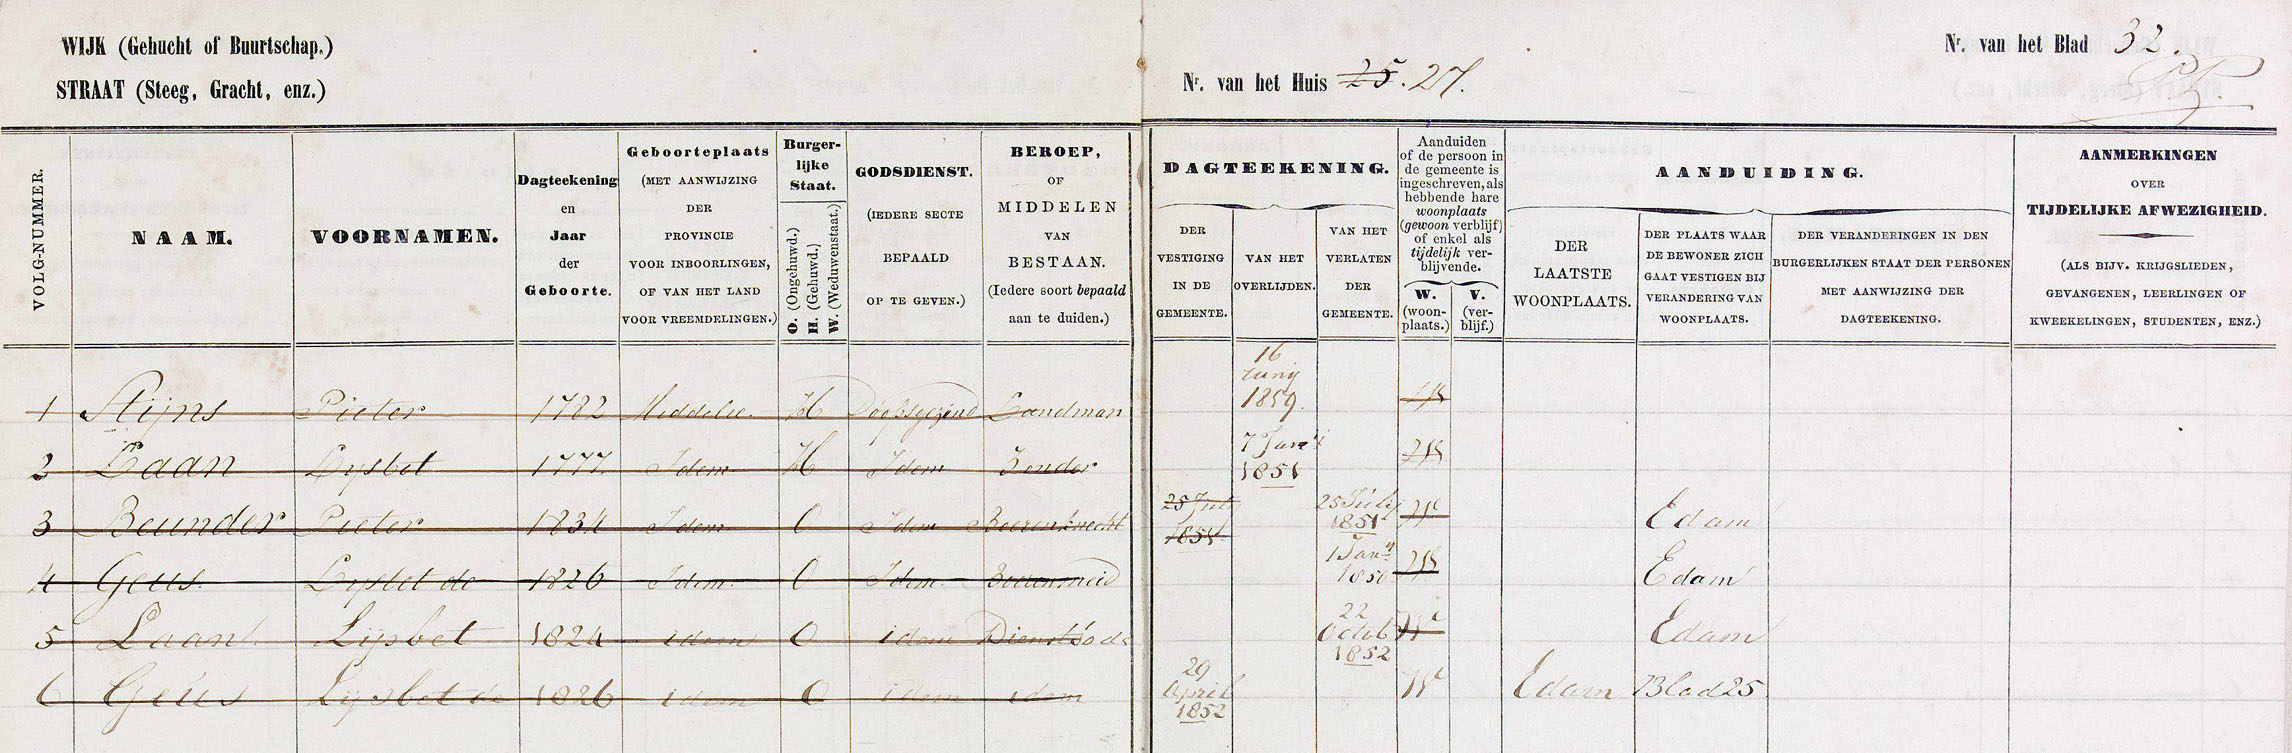 WIJK (Gehucht of Buurtschap.)
STRAAT (Steeg, Gracht, enz.)
Nr. van het Huis 25. 27.
Nr. van het Blad 32.
VOLG-NUMMER.
NAAM.
VOORNAMEN.
Dagteekening
en
Jaar
der
Geboorte.
Geboorteplaats
(MET AANWIJZING
DER
PROVINCIE
VOOR INBOORLINGEN,
OF VAN HET LAND
VOOR VREEMDELINGEN.)
Burger-
lijke
Staat.
O. (Ongehuwd.)
H. (Gehuwd.)
W. (Weduwenstaat.)
GODSDIENST.
(IEDERE SECTE
BEPAALD
OP TE GEVEN.)
BEROEP,
OF
MIDDELEN
VAN
BESTAAN.
(Iedere soort bepaald
aan te duiden.)
DAGTEEKENING.
DER
VESTIGING
IN DE
GEMEENTE.
VAN HET
OVERLIJDEN.
VAN HET
VERLATEN
DER
GEMEENTE.
Aanduiden
of de persoon in
de gemeente is
ingeschreven, als
hebbende hare
woonplaats
(gewoon verblijf)
of enkel als
tijdelijk ver-
blijvende.
W.
(woon-
plaats.)
V.
(ver-
blijf.)
AANDUIDING.
DER
LAATSTE
WOONPLAATS.
DER PLAATS WAAR
DE BEWONER ZICH
GAAT VESTIGEN BIJ
VERANDERING VAN
WOONPLAATS.
DER VERANDERINGEN IN DEN
BURGERLIJKEN STAAT DER PERSONEN
MET AANWIJZING DER
DAGTEEKENING.
AANMERKINGEN
OVER
TIJDELIJKE AFWEZIGHEID.
(ALS BIJV. KRIJGSLIEDEN,
GEVANGENEN, LEERLINGEN OF
KWEEKELINGEN, STUDENTEN, ENZ.)
1 Stijns Pieter 1782 Middelie. H Doopsgezind Landman 16 Juny 1859.
2 Laan Lysbet 1777 Idem H Idem Zonder 7 Jan 1851
3 Beunder Pieter 1834 Idem O Idem Boerenknecht 25 Juli 1851 25 July 1851 Edam
4 Geus. Lysbet de 1826 Idem. O Idem. Boerenmeid 1 Jan 1850 Edam
5 Laan Lijsbet 1824 idem O idem Dienstbode 22 Octob 1852 Edam
6 Geus Lysbet de 1826 idem O idem idem 29 April 1852 Edam Blad 25